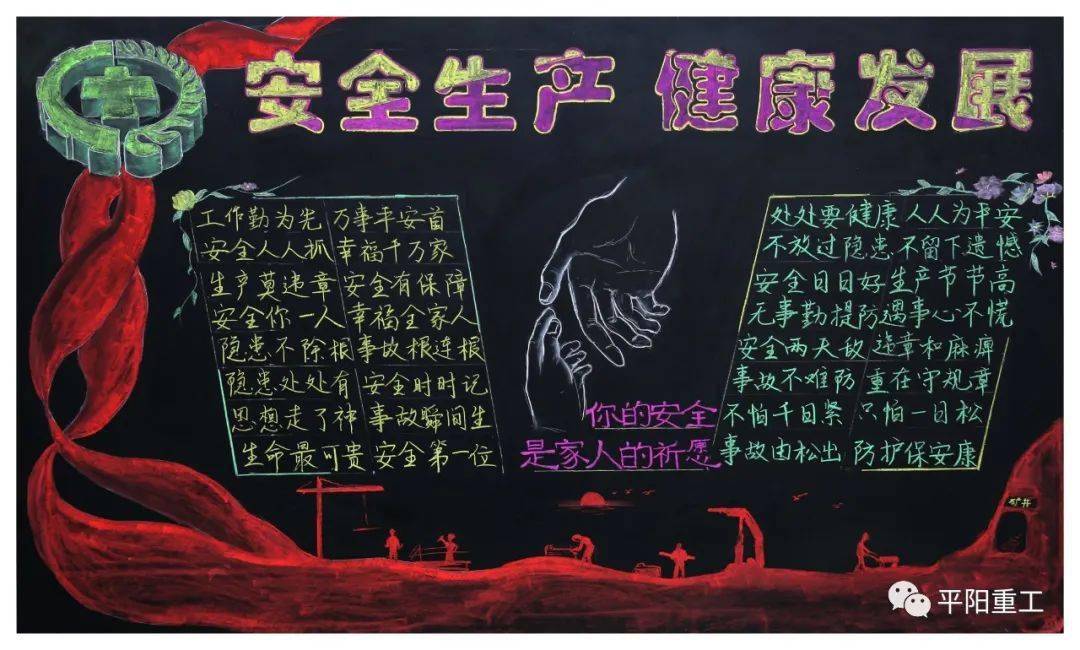 安全生产 健康发展
工作勤为先 万事平安首
安全人人抓 幸福千万家
生产莫违章 安全有保障
安全你一人 幸福全家人
隐患不除根 事故根连根
隐患处处有 安全时时记
思想走了神 事故瞬间生
生命最可贵 安全第一位
你的安全
是家人的祈愿
处处要健康 人人为平安
不放过隐患 不留下遗憾
安全日日好 生产节节高
无事勤提防 遇事心不慌
安全两大敌 违章和麻痹
事故不难防 重在守规章
不怕千日紧 只怕一日松
事故由松出 防护保安康
矿井
平阳重工